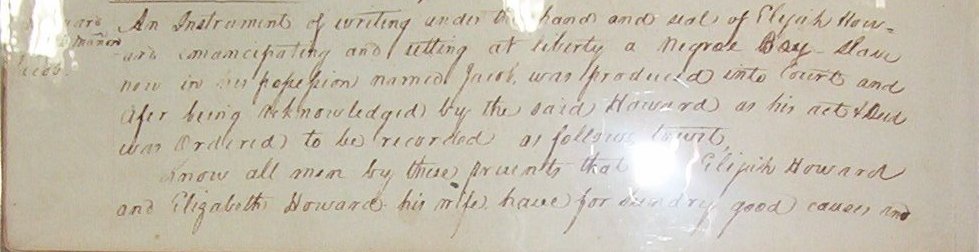 An Instrument of writing under the hand and seal of Elijah How=
ard emancipating and setting at liberty a Negroe Boy Slave
now in his possession named Jacob, was produced into Court and
after being acknowledged by the said Howard as his act & Deed
was Ordered to be recorded as follows towit,
Know all men by these presents that Elijah Howard
and Elizabeth Howard his wife have for sundry good causes and